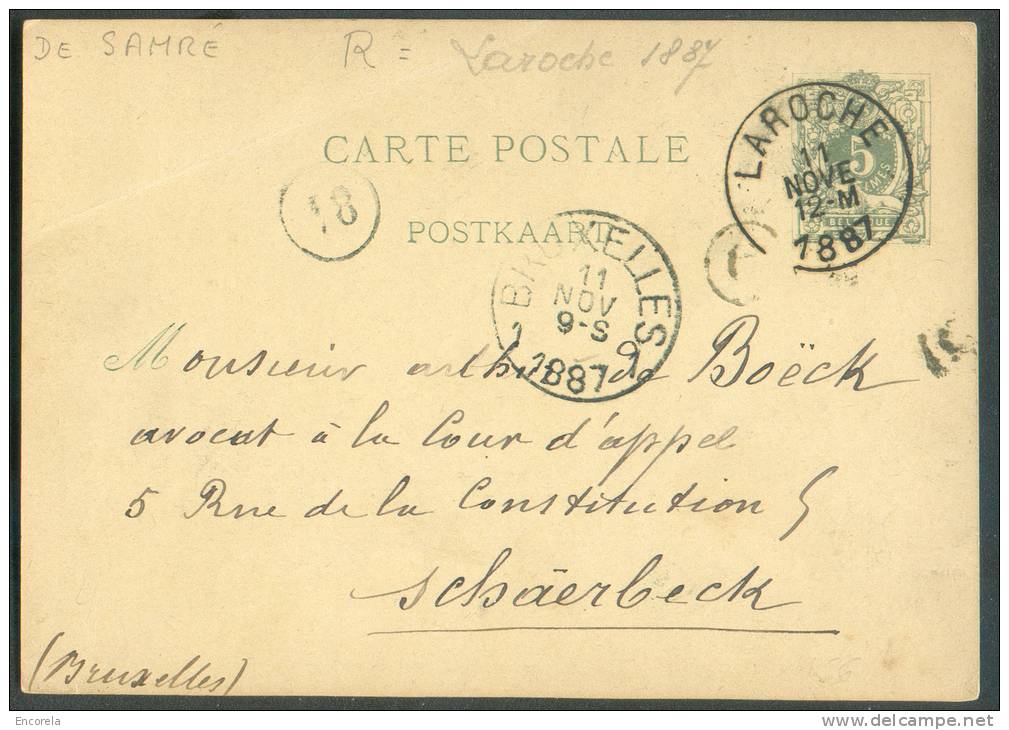 DE SAMRÉ
R = Laroche 1887
CARTE POSTALE
POSTKAART
LAROCHE
11
NOVE
12-M
1887
5
BELGIQUE
18
BRUXELLES
11
NOV
9-S
1887
Monsieur arthur de Boëck
avocat à la Cour d'appel
5 Rue de la Constitution 5
Schäerbeck
(Bruxelles)
56
Encorela
www.delcampe.net